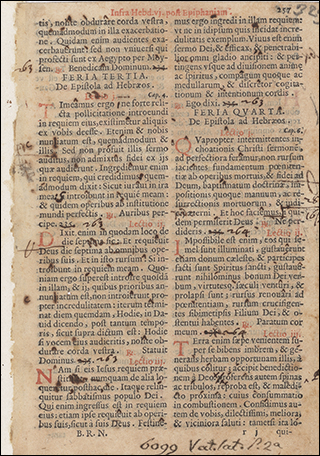 Infra Hebd. vj. post Epiphaniam.
257
tis, nolite obdurare corda vestra,
quemadmodum in illa exacerbatio-
ne. Quidam enim audientes exa-
cerbaverunt: sed non universi qui
profecti sunt ex Aegypto per Moy-
sen. Benedicam Dominum.
FERIA TERTIA.
De Epistola ad Hebraeos.
Cap. 4.
Timeamus ergo ne forte relicta
pollicitatione introeundi
in requiem eius, existimetur aliquis
ex vobis deesse. Etenim & nobis
nuntiatum est, quemadmodum &
illis. Sed non profuit illis sermo
auditus, non admistus fidei ex ijs
quae audierunt. Ingrediemur enim
in requiem, qui credidimus: quem-
admodum dixit: Sicut iuravi in ira
mea: Si introibunt in requiem meam:
& quidem operibus ab institutione
mundi perfectis. Auribus per-
cipe. 263
Lectio ij.
Dixit enim in quodam loco de
die septima sic: Et requievit
Deus die septima ab omnibus ope-
ribus suis. Et in isto rursum: Si in-
troibunt in requiem meam. Quo-
niam ergo superest introire quosdam
in illam, & ij, quibus prioribus an-
nuntiatum est, non introierunt pro-
pter incredulitatem: iterum termi-
nat diem quemdam, Hodie, in Da-
vid dicendo, post tantum tempo-
ris, sicut supra dictum est: Hodie
si vocem eius audieritis, nolite ob-
durare corda vestra. Statuit
Dominus. 263
Lectio iij.
Nam si eis Iesus requiem prae-
stitisset, numquam de alia lo-
queretur, posthac die. Itaque relin-
quitur sabbatismus populo Dei.
Qui enim ingressus est in requiem
eius: etiam ipse requievit ab operi-
bus suis, sicut à suis Deus. Festine-
B. R. N.
mus ergo ingredi in illam requiem:
ut ne in idipsum quis incidat incre-
dulitatis exemplum. Vivus est enim
sermo Dei, & efficax, & penetrabi-
lior omni gladio ancipiti: & per-
tingens usque ad divisionem animae
& spiritus, compagum quoque ac
medullarum, & discretor cogita-
tionum & intentionum cordis.
Ego dixi. 263
FERIA QUARTA.
De Epistola ad Hebraeos.
Cap. 6.
Quapropter intermittentes in-
choationis Christi sermonem,
ad perfectiora feramur, non rursum
iacientes fundamentum poeniten-
tiae ab operibus mortuis, & fidei ad
Deum, baptismatum doctrinae, im-
positionis quoque manuum, ac re-
surrectionis mortuorum, & iudicij
aeterni. Et hoc faciemus, si qui-
dem permiserit Deus. Ne per-
dideris. 264
Lectio ij.
Impossibile est enim, eos qui se-
mel sunt illuminati, gustaverunt
etiam donum caeleste, & participes
facti sunt Spiritus sancti, gustave-
runt nihilominus bonum Dei ver-
bum, virtutesque saeculi venturi, &
prolapsi sunt; rursus renovari ad
poenitentiam, rursum crucifigen-
tes sibimetipsis Filium Dei, & o-
stentui habentes. Paratum cor
meum. 264
Lectio iij.
Terra enim saepe venientem su-
per se bibens imbrem, & ge-
nerans herbam opportunam illis, à
quibus colitur; accipit benedictio-
nem à Deo: proferens autem spinas
ac tribulos, reproba est, & maledi-
cto proxima: cuius consummatio
in combustionem. Confidimus au-
tem de vobis, dilectissimi, meliora,
& viciniora saluti: tametsi ita lo-
qui-